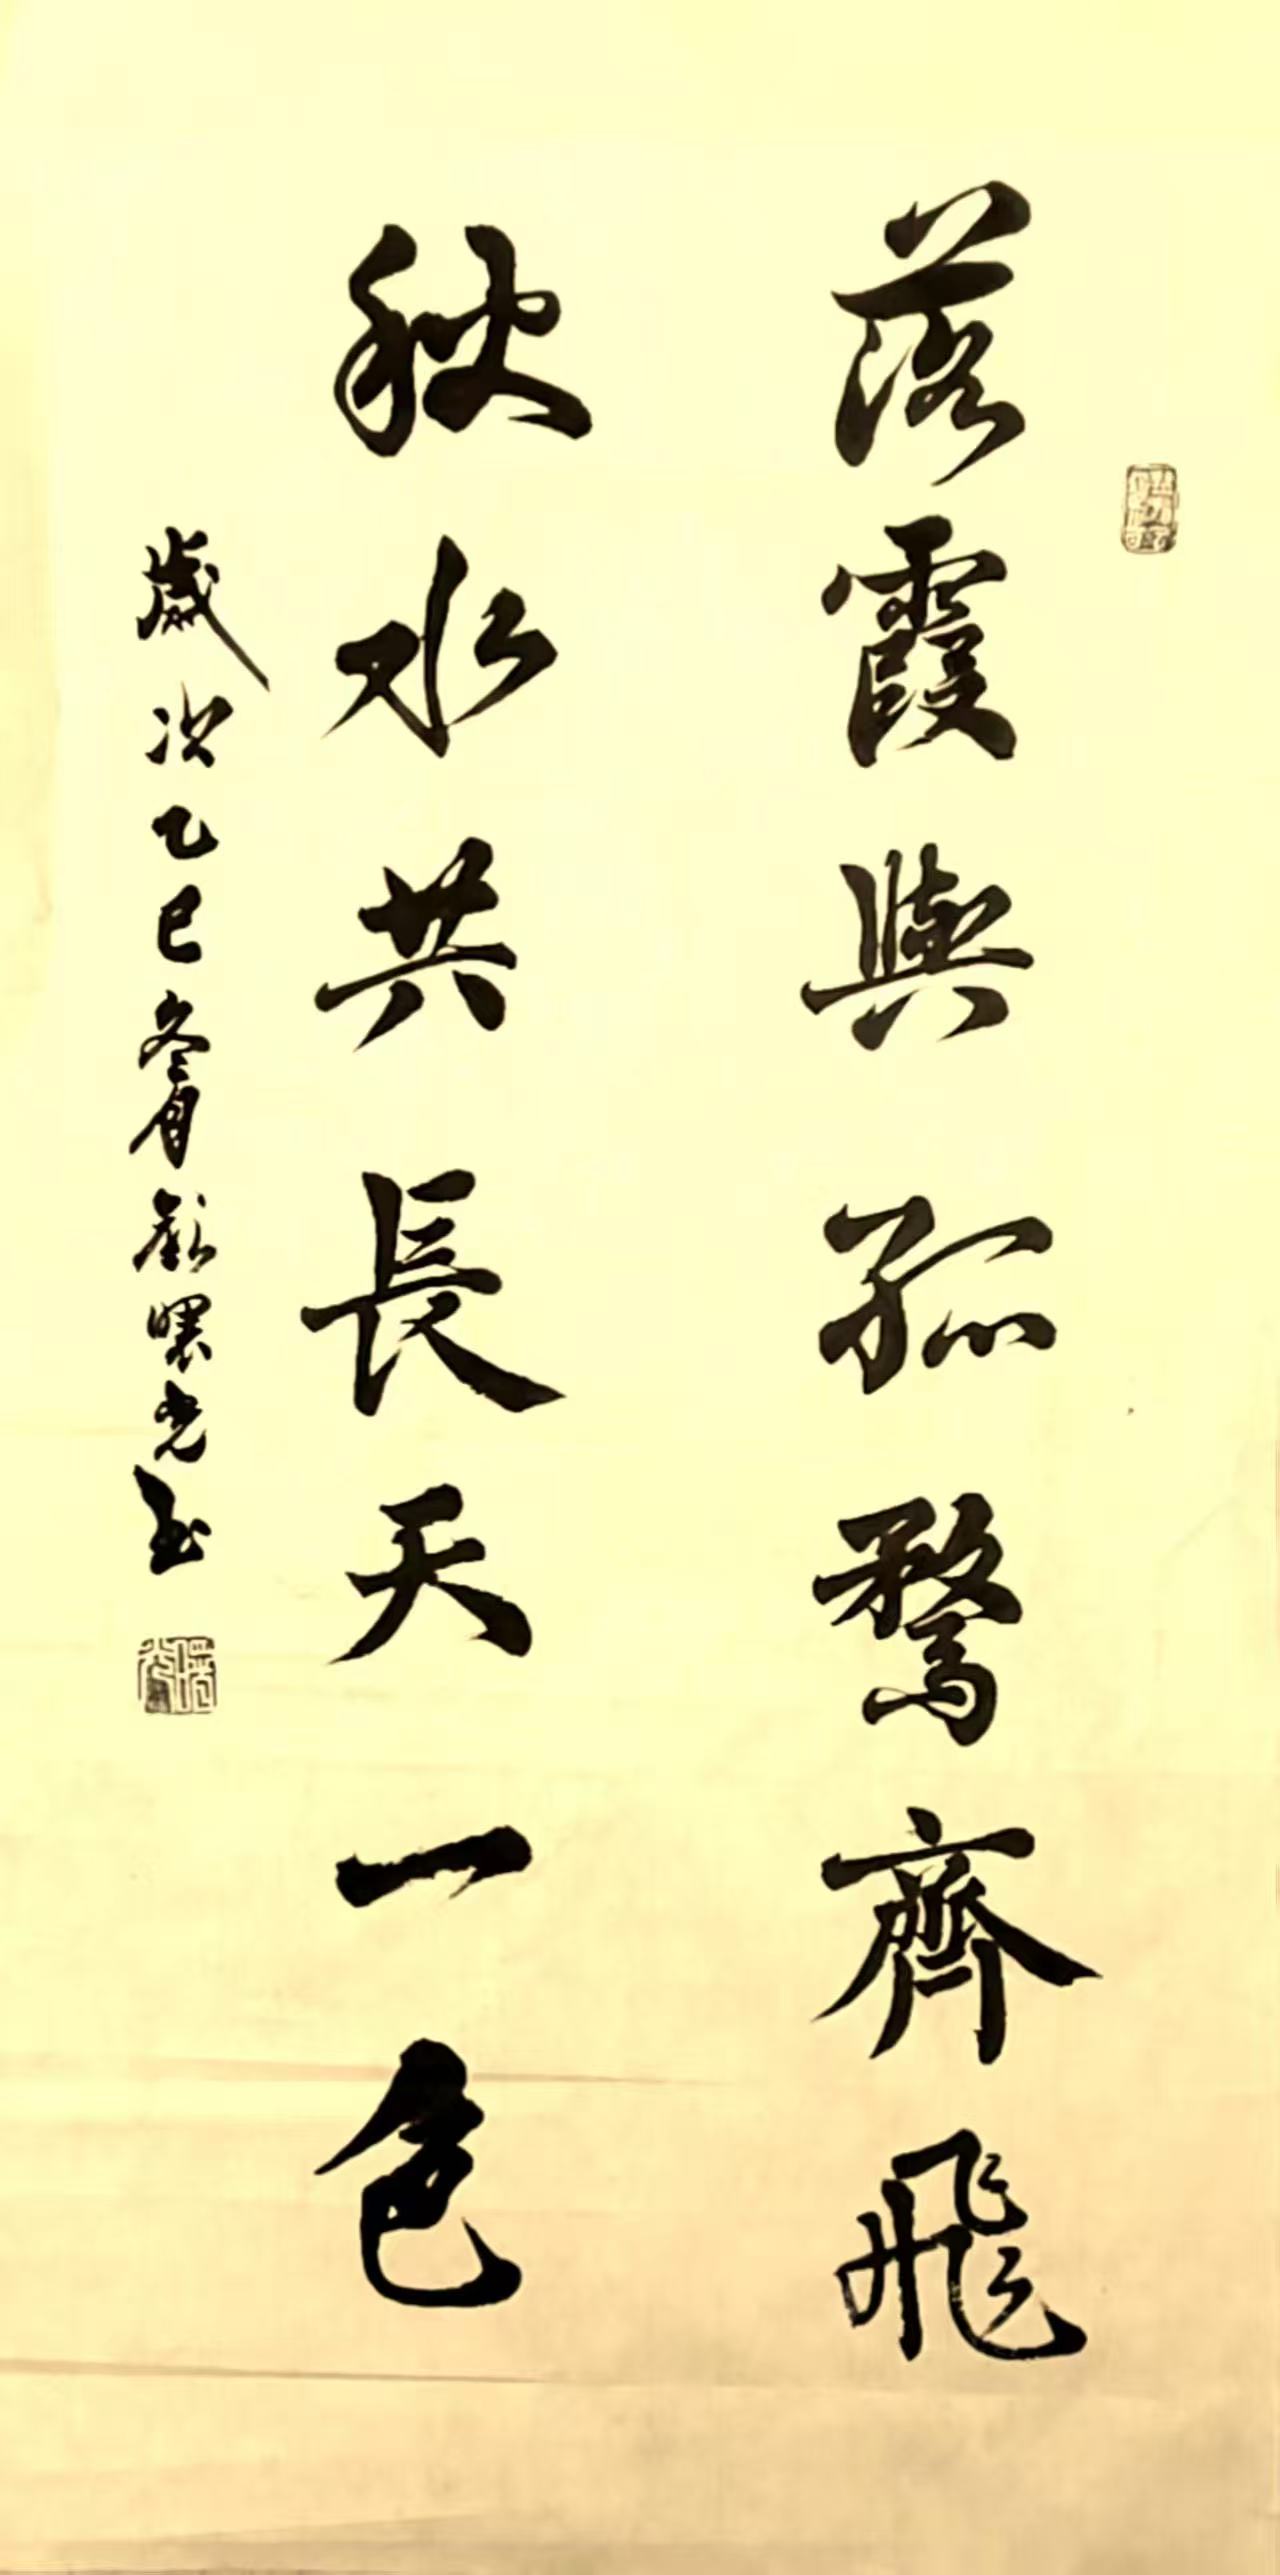 落霞與孤鶩齊飛
秋水共長天一色
歲次乙巳冬月顧曙光書